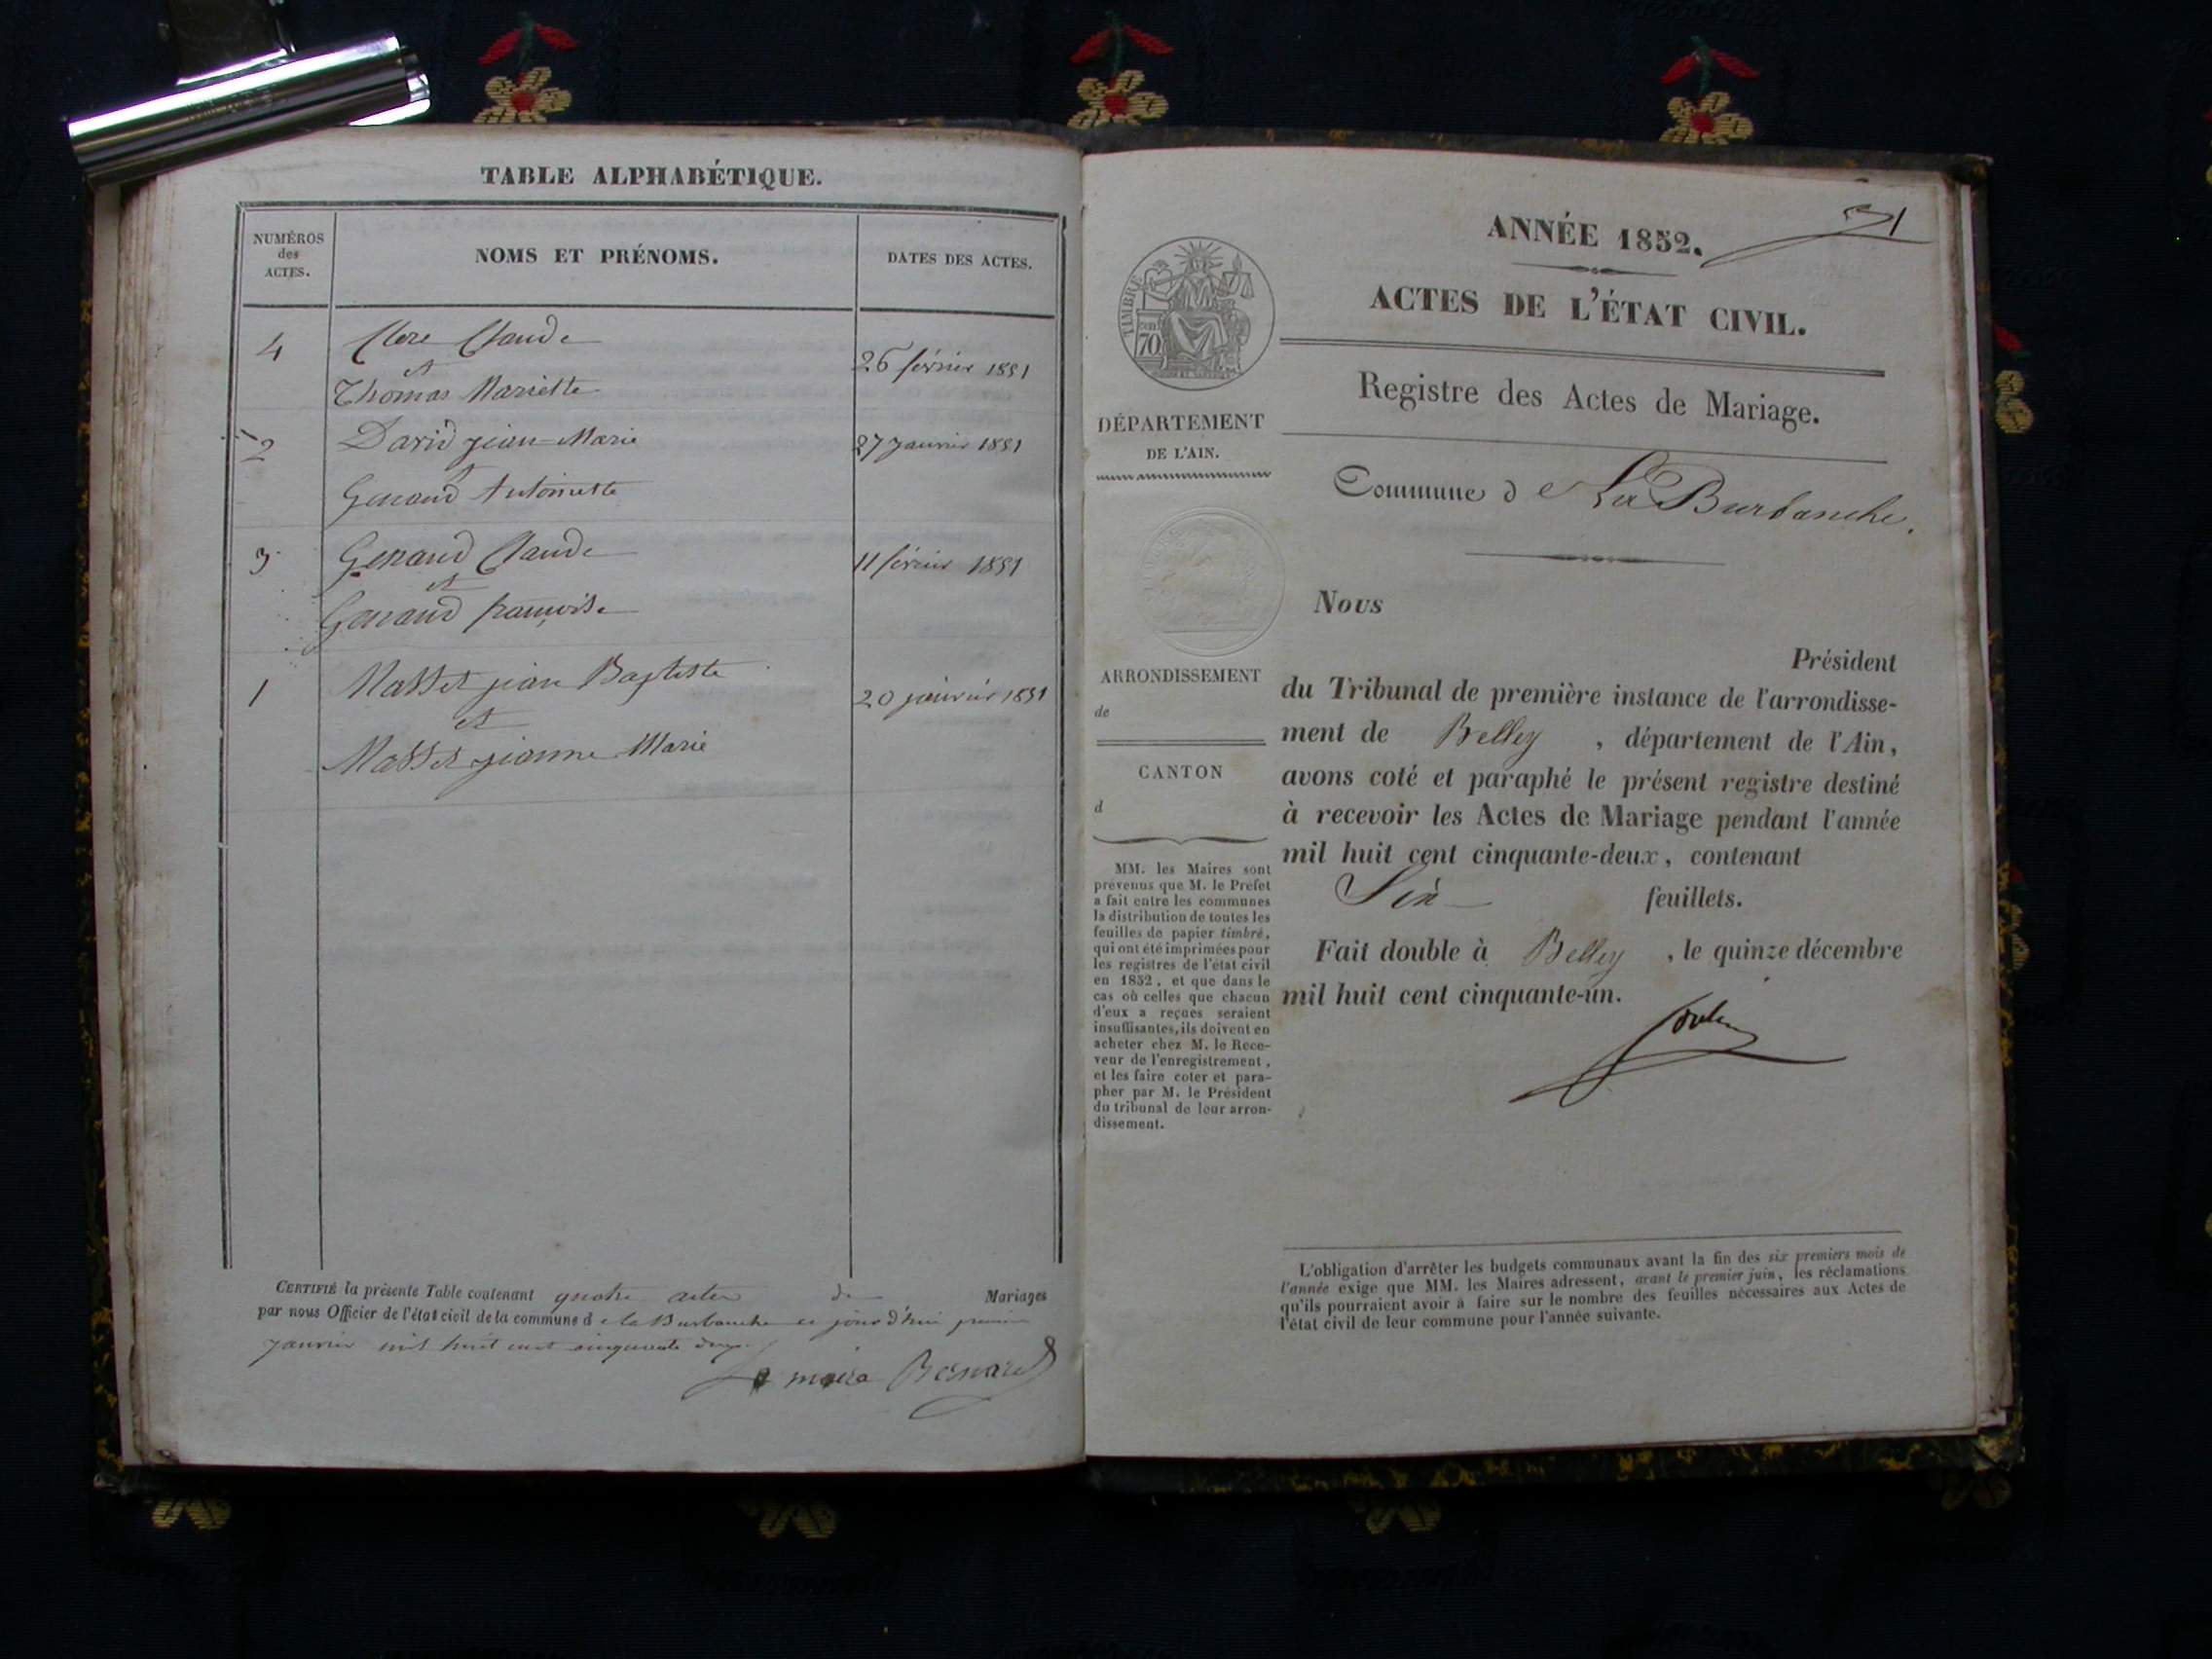 TABLE ALPHABÉTIQUE.
NUMÉROS
des
ACTES.
NOMS ET PRÉNOMS.
DATES DES ACTES.
4
Clerc Claude
et
Thomas Mariette
26 février 1851
2
David jean-Marie
Genaud Antoinette
27 janvier 1851
3
Genaud Claude
et
Genaud françoise
11 février 1851
1
Masset jean Baptiste
et
Masset jeanne Marie
20 janvier 1851
CERTIFIÉ la présente Table contenant quatre actes de Mariages
par nous Officier de l'état civil de la commune d e la Burbanche ce jourd'hui premier
janvier mil huit cent cinquante deux.
Le maire
31
ANNÉE 1852.
ACTES DE L'ÉTAT CIVIL.
Registre des Actes de Mariage.
Commune d e La Burbanche.
TIMBRE
70
DÉPARTEMENT
DE L'AIN.
ARRONDISSEMENT
de
CANTON
d
MM. les Maires sont
prévenus que M. le Prefet
a fait entre les communes
la distribution de toutes les
feuilles de papier timbré,
qui ont été imprimées pour
les registres de l'état civil
en 1852, et que dans le
cas où celles que chacun
d'eux a reçues seraient
insuffisantes, ils doivent en
acheter chez M. le Rece-
veur de l'enregistrement,
et les faire coter et para-
pher par M. le Président
du tribunal de leur arron-
dissement.
Nous
Président
du Tribunal de première instance de l'arrondisse-
ment de Belley , département de l'Ain,
avons coté et paraphé le présent registre destiné
à recevoir les Actes de Mariage pendant l'année
mil huit cent cinquante-deux, contenant
Six feuillets.
Fait double à Belley , le quinze décembre
mil huit cent cinquante-un.
L'obligation d'arrêter les budgets communaux avant la fin des six premiers mois de
l'année exige que MM. les Maires adressent, avant le premier juin, les réclamations
qu'ils pourraient avoir à faire sur le nombre des feuilles nécessaires aux Actes de
l'état civil de leur commune pour l'année suivante.